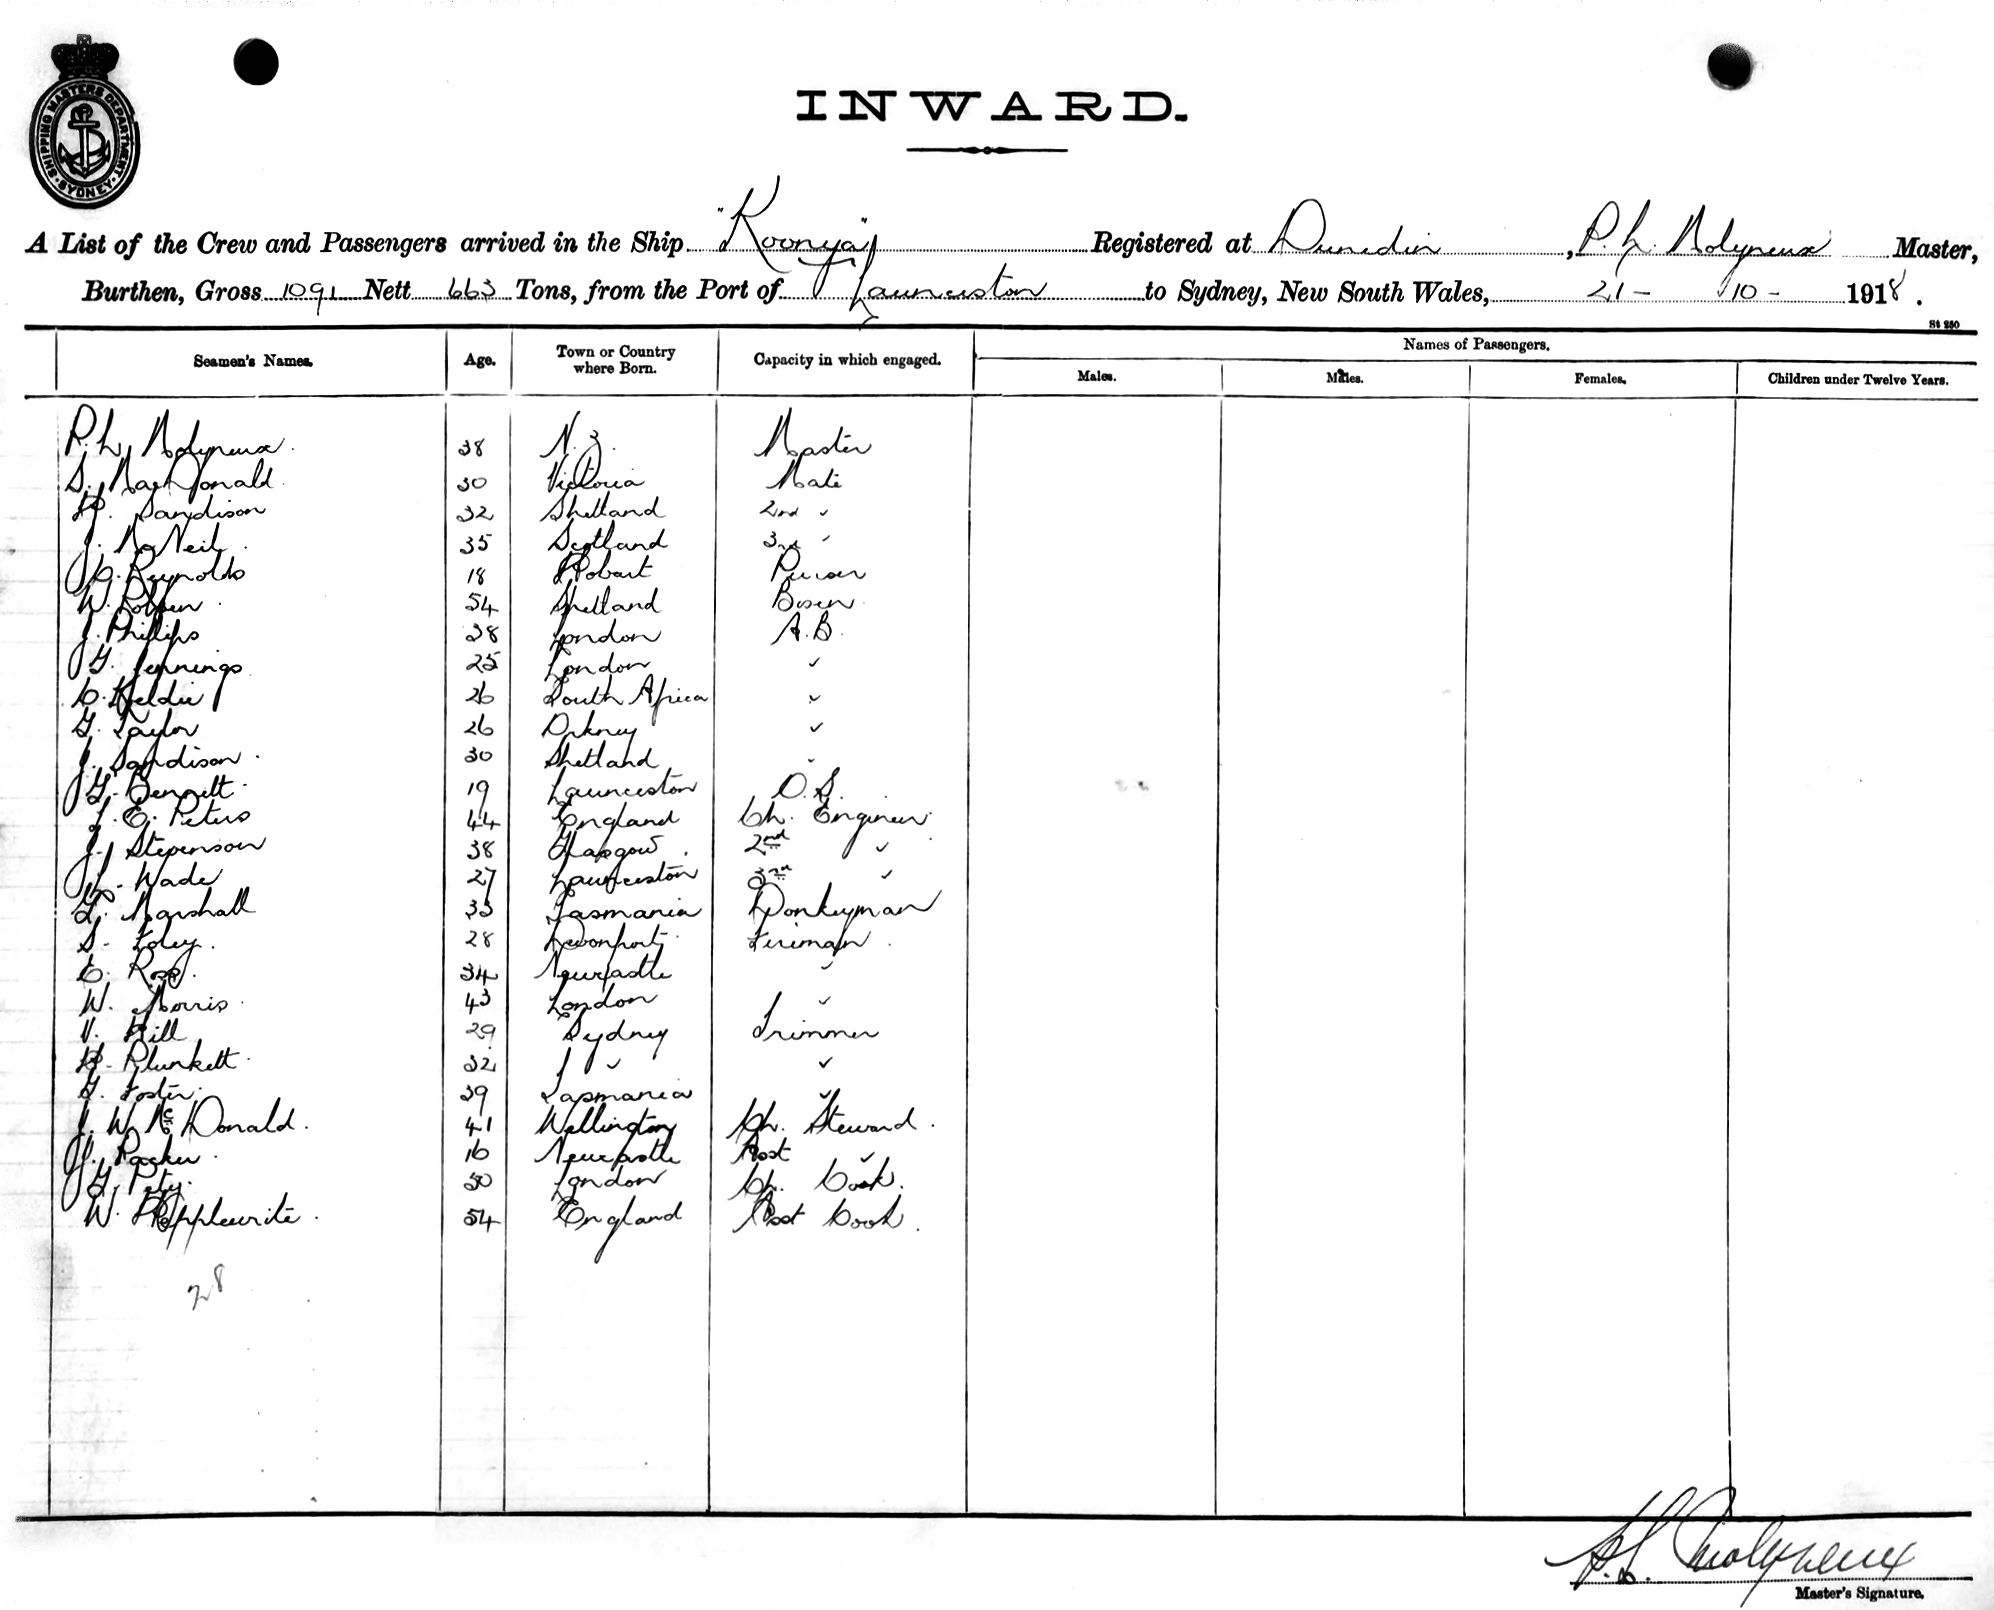 SHIPPING MASTERS DEPARTMENT · SYDNEY ·
INWARD.
A List of the Crew and Passengers arrived in the Ship "Koonya" Registered at Dunedin, P. L. Molyneux Master,
Burthen, Gross 1091 Nett 663 Tons, from the Port of Launceston to Sydney, New South Wales, 21 - 10 - 1918.
St 250
Seamen's Names. Age. Town or Country where Born. Capacity in which engaged. Names of Passengers.
Males. Males. Females. Children under Twelve Years.
P. L. Molyneux 38 N. Z. Master
S. MacDonald 30 Victoria Mate
Sandison 32 Shetland 2nd "
J. McNeil 35 Scotland 3rd "
Reynolds 18 Hobart Purser
W. 54 Shetland Bosun
J. Phillips 28 London A. B.
G. Jennings 25 London "
C. Keldie 26 South Africa "
G. Taylor 26 Orkney "
J. Sandison 30 Shetland "
G. Bennett 19 Launceston O. S.
J. E. Peters 44 England Ch. Engineer
J. Stevenson 38 Glasgow 2nd "
L. Wade 27 Launceston 3rd "
Marshall 33 Tasmania Donkeyman
S. Foley 28 Devonport Fireman
C. Ross 34 Newcastle "
W. Morris 43 London "
V. Hill 29 Sydney Trimmer
H. Plunkett 32 " "
G. Foster 39 Tasmania "
J. W. McDonald 41 Wellington Ch. Steward
J. Packer 16 Newcastle Asst "
G. 50 London Ch. Cook
W. Applewrite 54 England Asst Cook
28
P. L. Molyneux
Master's Signature.